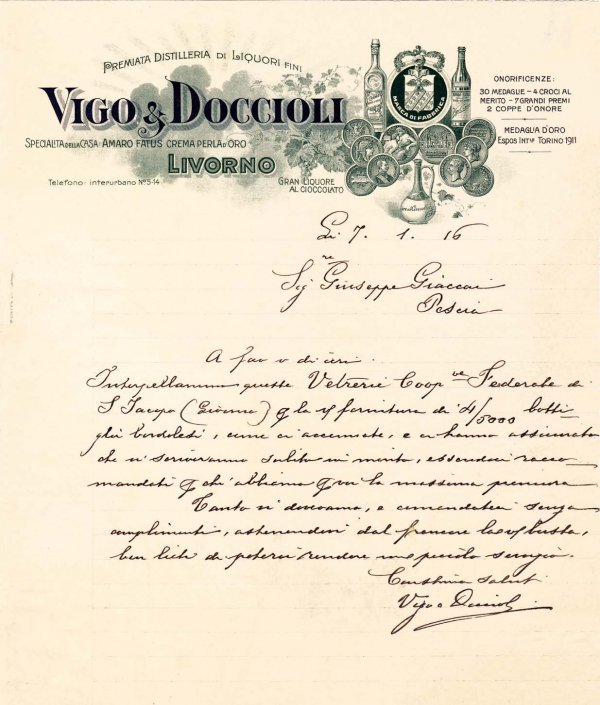 PREMIATA DISTILLERIA DI LIQUORI FINI
VIGO & DOCCIOLI
SPECIALITÀ DELLA CASA: AMARO FATUS CREMA PERLA D'ORO
LIVORNO
Telefono: interurbano No 5-14
GRAN LIQUORE
AL CIOCCOLATO
MARCA DI FABBRICA
ONORIFICENZE:
30 MEDAGLIE – 4 CROCI AL
MERITO – 7 GRANDI PREMI
2 COPPE D'ONORE
MEDAGLIA D'ORO
ESPOS. INTle TORINO 1911
Li 7. 1. 16
Sigre Giuseppe Giaccai
Pescia
A fav v di ieri.
Interpellammo queste Vetrerie Coopve Federate di
S Jacopo (Livorno) la fornitura di 4/5000 botti
glie bordolesi, come ci accennate, e ci hanno assicurato
che vi scriveranno subito in merito, essendosi racco
mandati ch'abbiamo voi la massima premura
Tanto vi dovevamo, e comandateci senza
complimenti, astenendovi dal francare la busta,
ben lieti di potervi rendere un piccolo servigio.
saluti
Vigo e Doccioli